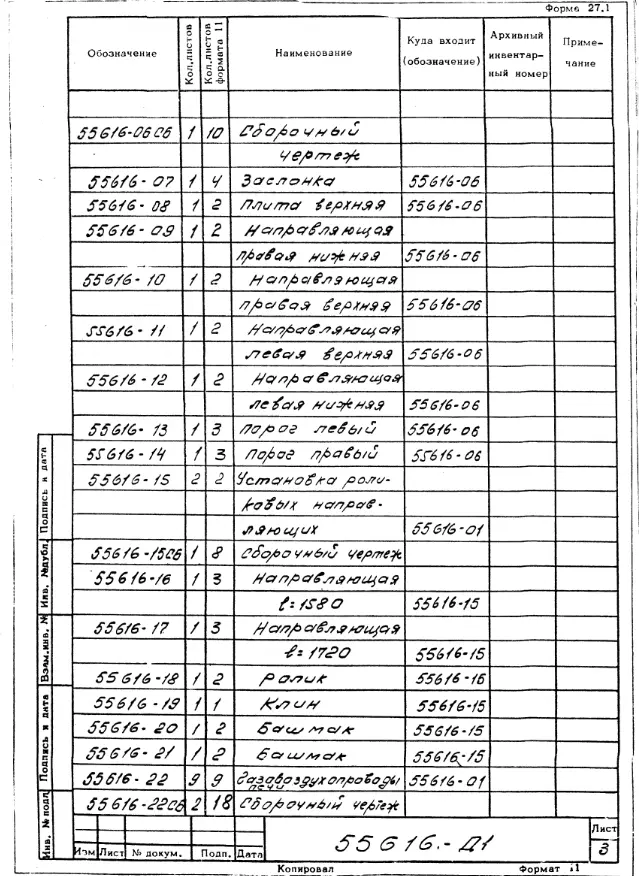 Форма 27.1
Обозначение Кол.листов Кол.листов формата 11 Наименование Куда входит (обозначение) Архивный инвентарный номер Примечание
55616-06СБ 1 10 Сборочный
чертеж
55616-07 1 4 Заслонка 55616-06
55616-08 1 2 Плита верхняя 55616-06
55616-09 1 2 Направляющая
правая нижняя 55616-06
55616-10 1 2 Направляющая
правая верхняя 55616-06
55616-11 1 2 Направляющая
левая верхняя 55616-06
55616-12 1 2 Направляющая
левая нижняя 55616-06
55616-13 1 3 Порог левый 55616-06
55616-14 1 3 Порог правый 55616-06
55616-15 2 2 Установка роли-
ковых направ-
ляющих 55616-01
55616-15СБ 1 8 Сборочный чертеж
55616-16 1 3 Направляющая
ℓ=1580 55616-15
55616-17 1 3 Направляющая
ℓ=1720 55616-15
55616-18 1 2 Ролик 55616-16
55616-19 1 1 Клин 55616-15
55616-20 1 2 Башмак 55616-15
55616-21 1 2 Башмак 55616-15
55616-22 9 9 Газовоздухопроводы 55616-01
печи
55616-22СБ 2 18 Сборочный чертеж
Инв. № подл. Подпись и дата Взам.инв. № Инв. № дубл. Подпись и дата
Изм Лист № докум. Подп. Дата
55616.-Д1
Лист
3
Копировал Формат 11